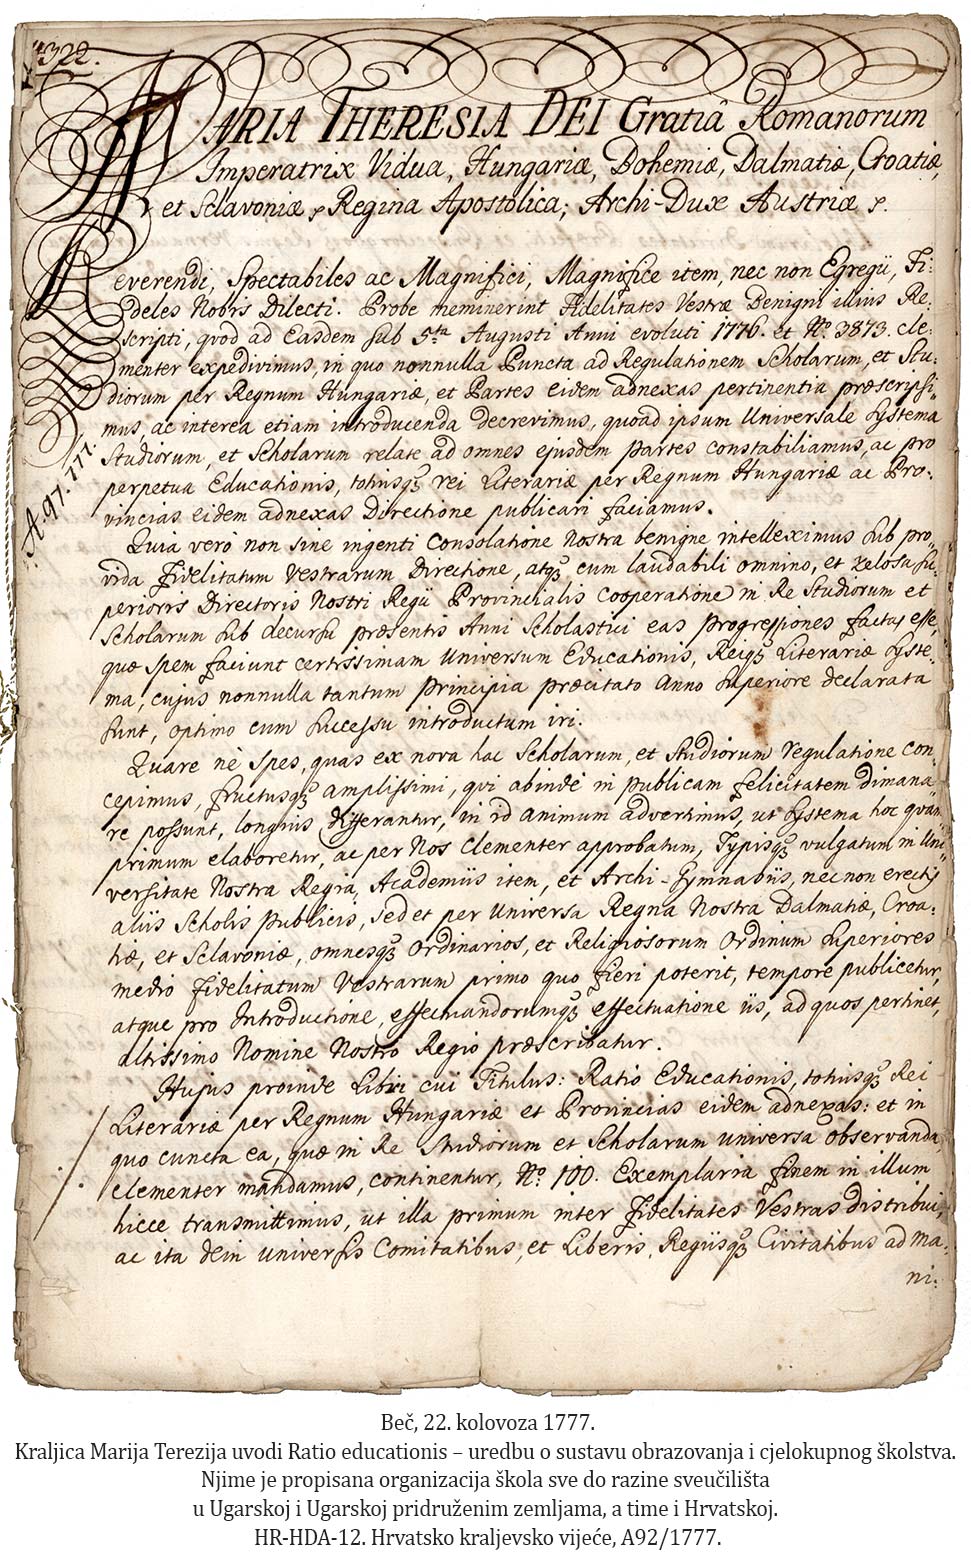 322.
MARIA THERESIA DEI Gratiâ Romanorum
Imperatrix Vidua, Hungariæ, Bohemiæ, Dalmatiæ, Croatiæ,
et Sclavoniæ Regina Apostolica; Archi-Dux Austriæ
Reverendi, Spectabiles ac Magnifici, Magnifice item, nec non Egregii, Fi:
deles Nobis Dilecti. Probe meminerint Fidelitates Vestræ Benigni illius Re:
scripti, qvod ad Easdem sub 5ta Augusti Anni evoluti 1776. et No. 3873. cle:
menter expedivimus, in quo nonnulla Puncta ad Regulationem Scholarum, et Stu:
diorum per Regnum Hungariæ, et Partes eidem adnexas pertinentia præscripsi
mus, ac interea etiam introducenda decrevimus, quoad ipsum Universale Systema
Studiorum, et Scholarum relate ad omnes ejusdem Partes constabiliamus, ac pro
perpetua Educationis, totiusq́ rei Literariæ per Regnum Hungariæ ac Pro:
vincias eidem adnexas Directione publicari faciamus.
A. 97. 777.
Quia verò non sine ingenti Consolatione Nostra benigne intelleximus sub pro,
vida Fidelitatum Vestrarum Directione, atq́ cum laudabili omnino, et zelosa Su:
perioris Directoris Nostri Regii Provincialis Cooperatione in Re Studiorum et
Scholarum sub decursu præsentis Anni Scholastici eas Progressiones factas esse,
quæ spem faciunt certissimam Universum Educationis, Reiq́ Literariæ Syste:
ma, cujus nonnulla tantum Principia præcitato Anno Superiore declarata
sunt, optimo cum Successu introductum iri.
Quare nè Spes, quas ex nova hac Scholarum, et Studiorum regulatione con
cepimus, fructusq́ amplissimi, qvi abinde in Publicam felicitatem dimana
re possunt, longius differantur, in id animum advertimus, ut Systema hoc quam
primum elaboretur, ac per Nos Clementer approbatum, Typisq́ vulgatum in Uni
versitate Nostra Regia, Academiis item, et Archi-Gymnasiis, nec non erectis
aliis Scholis Publicis, sed et per Universa Regna Nostra Dalmatiæ, Croa:
tiæ, et Sclavoniæ, omnesq́ Ordinarios, et Religiosorum Ordinum Superiores
medio Fidelitatum Vestrarum primo quo fieri poterit, tempore publicetur,
atque pro Introductione, effectuandorumq́ effectuatione iis, ad quos pertinet,
altissimo Nomine Nostro Regio præscribatur.
Hujus proinde Libri cui Titulus: Ratio Educationis, totiusq́ Rei
Literariæ per Regnum Hungariæ et Provincias eidem adnexas: et in
quo cuncta ea, quæ in Re Studiorum et Scholarum universa observanda
clementer mandamus, continentur, No. 100. Exemplaria finem in illum
hicce transmittimus, ut illa primum inter Fidelitates Vestras distribui,
ac ita dein universis Comitatibus, et Liberis, Regiisq́ Civitatibus ad ma:
ni:
Beč, 22. kolovoza 1777.
Kraljica Marija Terezija uvodi Ratio educationis – uredbu o sustavu obrazovanja i cjelokupnog školstva.
Njime je propisana organizacija škola sve do razine sveučilišta
u Ugarskoj i Ugarskoj pridruženim zemljama, a time i Hrvatskoj.
HR-HDA-12. Hrvatsko kraljevsko vijeće, A92/1777.